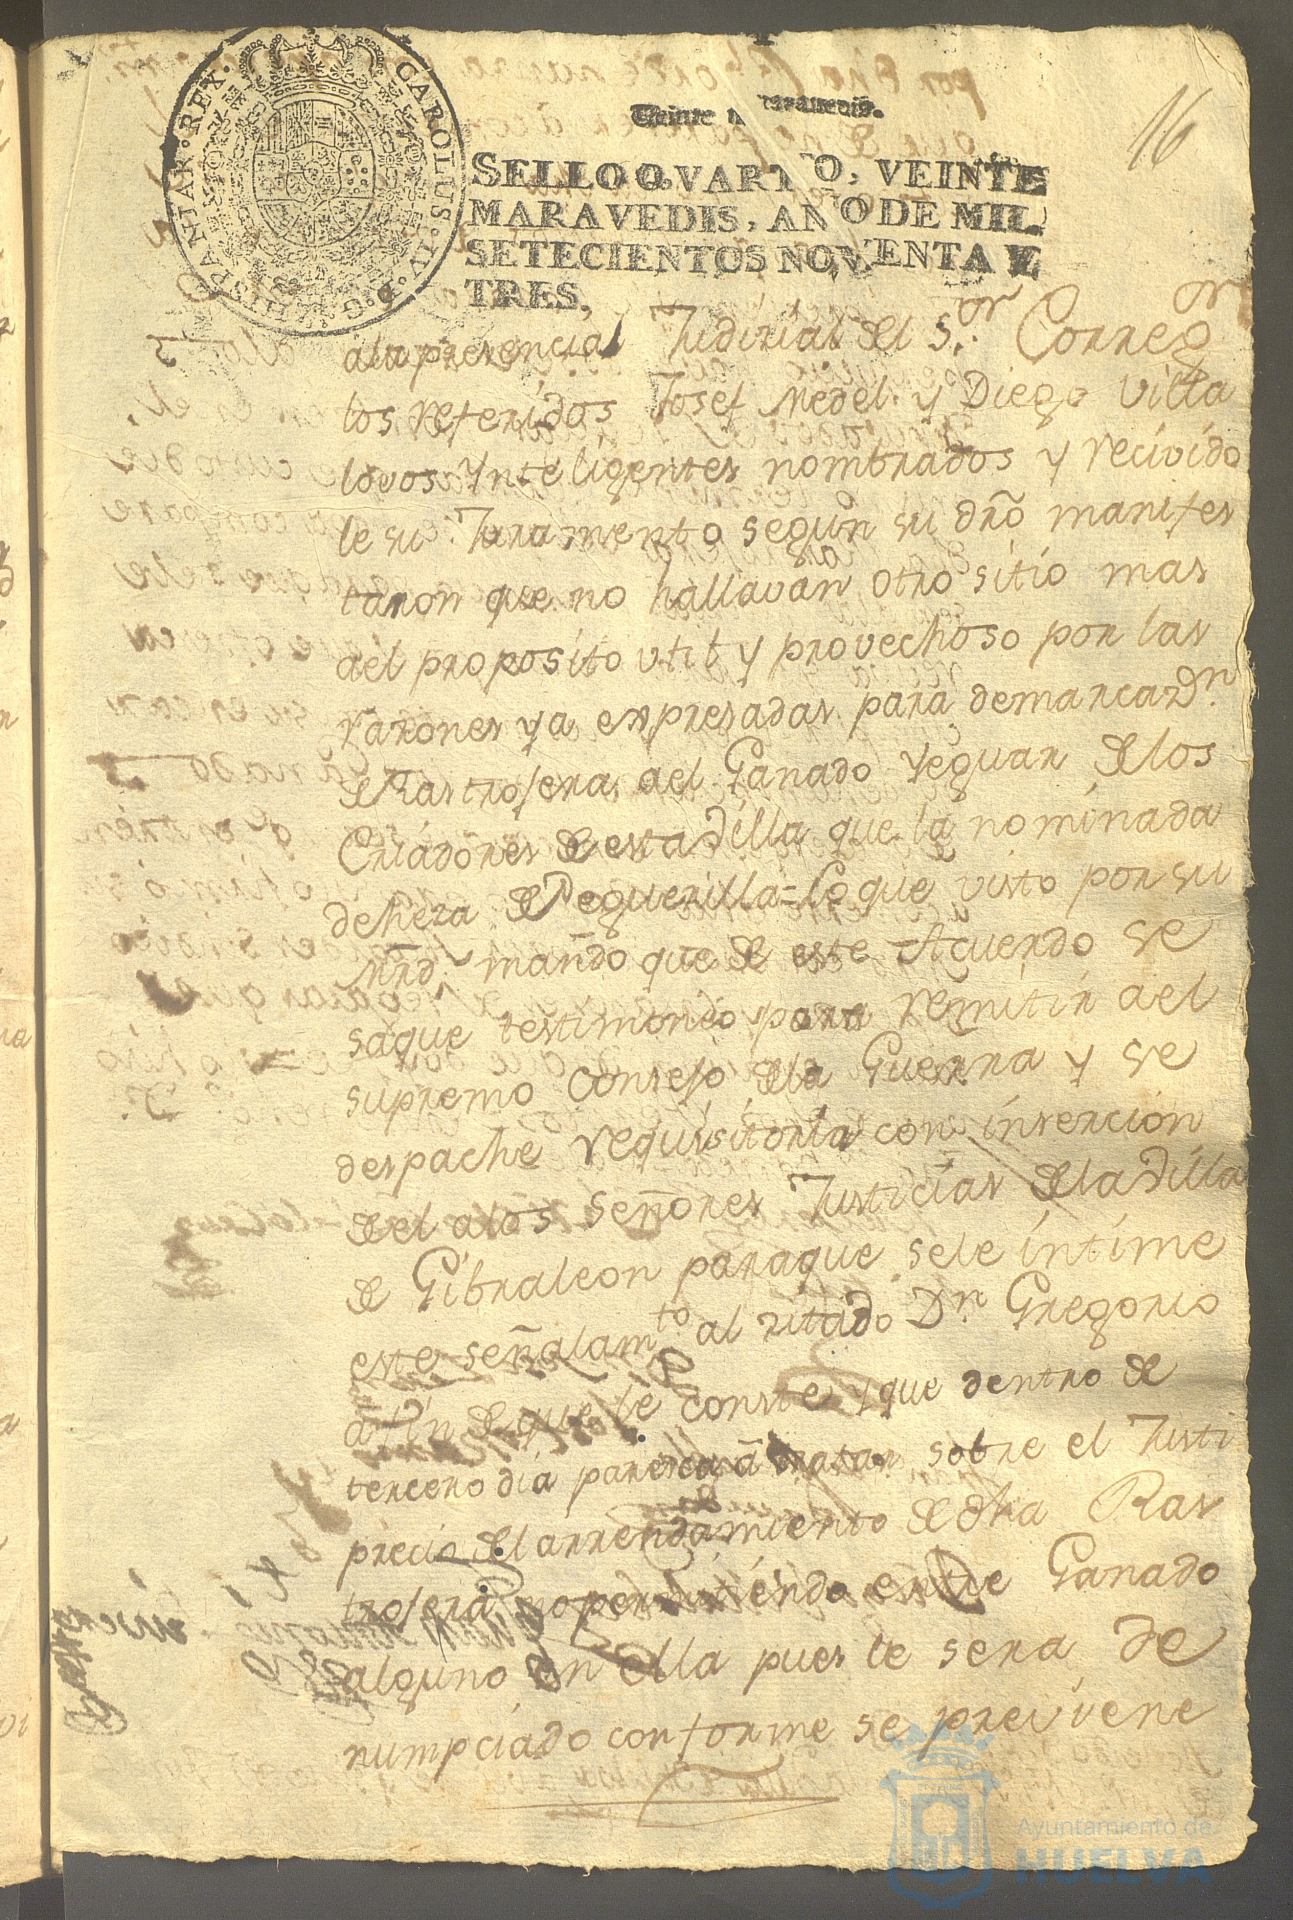 16
Veinte maravedis.
SELLO QVARTO, VEINTE
MARAVEDIS, AÑO DE MIL
SETECIENTOS NOVENTA Y
TRES.
CAROLUS · IV · D · G · HISPANIAR · REX ·
ala presencia Judicial del S.or Correg.or
los referidos Josef Medel y Diego Villa
lovos Ynteligentes nombrados y recivido
le su Juramento segun su dro manifes
taron que no hallavan otro sitio mas
del proposito util y provechoso por las
razones ya expresadas para demarcaz.on
de Rastrojera del Ganado Yeguar de los
Criadores de esta Villa que la nominada
deheza de Peguerilla = Lo que visto por su
Mrd. mando que de este Acuerdo se
saque testimonio para remitir ael
supremo Consejo dela Guerra y se
despache requisitoria con inserción
de el alos Señores Justicias dela Villa
de Gibraleon paraque sele intime
este señalam.to al zitado D.n Gregorio
afin de que le conste y que dentro de
tercero dia paresca á tratar sobre el Justi
precio del arrendamiento de dha Ras
trojera no permitiendo entre Ganado
alguno en ella pues le sera de
numpciado conforme se previene
Ayuntamiento de
HUELVA